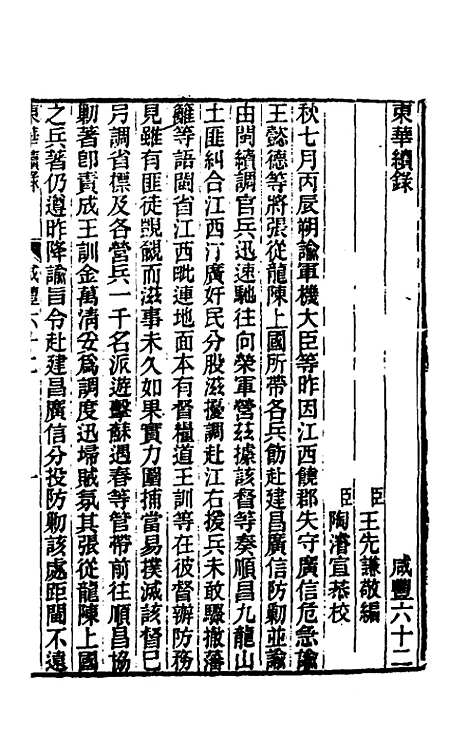 東華續錄 咸豐六十二
臣王先謙敬編
臣陶濬宣恭校
秋七月丙辰朔諭軍機大臣等昨因江西饒郡失守廣信危急諭
王懿德等將張從龍陳上國所帶各兵飭赴建昌廣信防勦並諭
由閩續調官兵迅速馳往向榮軍營茲據該督等奏順昌九龍山
土匪糾合江西汀廣奸民分股滋擾調赴江右援兵未敢驟撤藩
籬等語閩省江西毗連地面本有督糧道王訓等在彼督辦防務
見雖有匪徒覬覦而滋事未久如果實力圍捕當易撲滅該督已
另調省標及各營兵一千名派遊擊蘇遇春等管帶前往順昌協
勦著卽責成王訓金萬清妥爲調度迅埽賊氛其張從龍陳上國
之兵著仍遵昨降諭旨令赴建昌廣信分投防勦該處距閩不遠
東華續錄 咸豐六十二 一